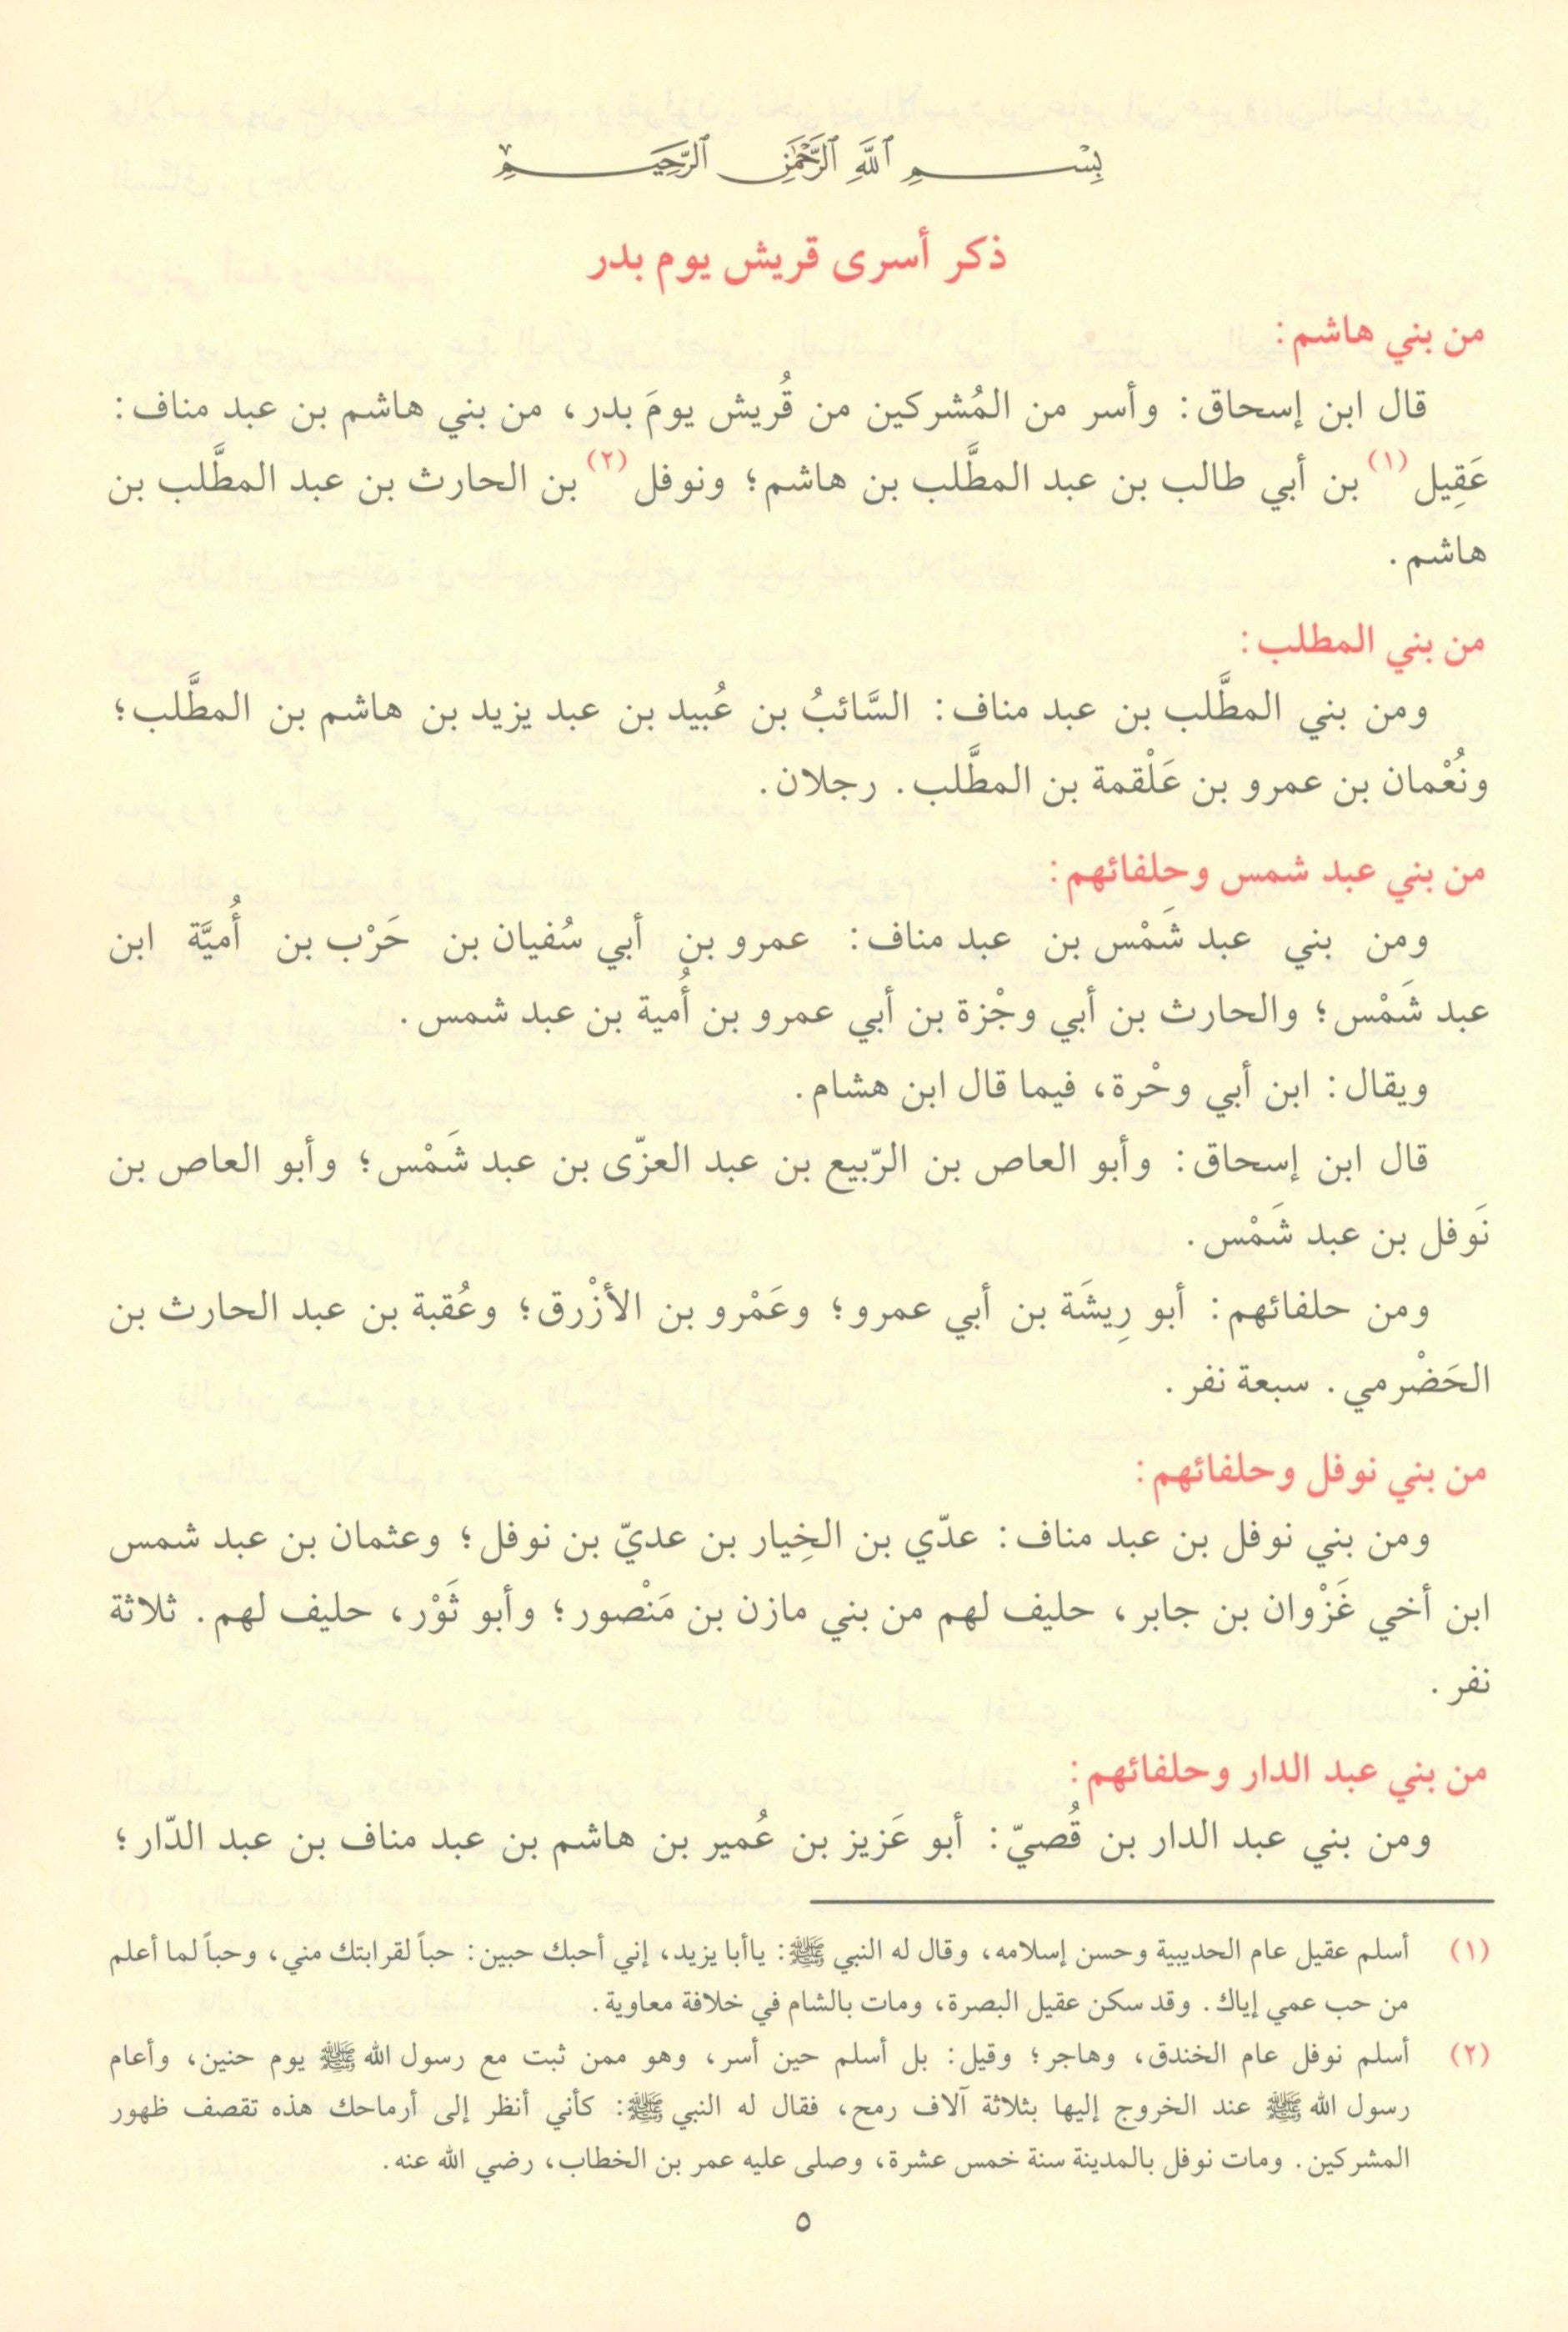 بِسْمِ ٱللَّهِ ٱلرَّحْمَٰنِ ٱلرَّحِيمِ
ذكر أسرى قريش يوم بدر
من بني هاشم:
قال ابن إسحاق: وأسر من المُشركين من قُريش يومَ بدر، من بني هاشم بن عبد مناف:
عَقِيل (١) بن أبي طالب بن عبد المطَّلب بن هاشم؛ ونوفل (٢) بن الحارث بن عبد المطَّلب بن
هاشم.
من بني المطلب:
ومن بني المطَّلب بن عبد مناف: السَّائبُ بن عُبيد بن عبد يزيد بن هاشم بن المطَّلب؛
ونُعْمان بن عمرو بن عَلْقمة بن المطَّلب. رجلان.
من بني عبد شمس وحلفائهم:
ومن بني عبد شَمْس بن عبد مناف: عمرو بن أبي سُفيان بن حَرْب بن أُميَّة ابن
عبد شَمْس؛ والحارث بن أبي وجْزة بن أبي عمرو بن أُمية بن عبد شمس.
ويقال: ابن أبي وحْرة، فيما قال ابن هشام.
قال ابن إسحاق: وأبو العاص بن الرّبيع بن عبد العزّى بن عبد شَمْس؛ وأبو العاص بن
نَوفل بن عبد شَمْس.
ومن حلفائهم: أبو رِيشَة بن أبي عمرو؛ وعَمْرو بن الأزْرق؛ وعُقبة بن عبد الحارث بن
الحَضْرمي. سبعة نفر.
من بني نوفل وحلفائهم:
ومن بني نوفل بن عبد مناف: عدّي بن الخِيار بن عديّ بن نوفل؛ وعثمان بن عبد شمس
ابن أخي غَزْوان بن جابر، حليف لهم من بني مازن بن مَنْصور؛ وأبو ثَوْر، حليف لهم. ثلاثة
نفر.
من بني عبد الدار وحلفائهم:
ومن بني عبد الدار بن قُصيّ: أبو عَزيز بن عُمير بن هاشم بن عبد مناف بن عبد الدّار؛
(١) أسلم عقيل عام الحديبية وحسن إسلامه، وقال له النبي ﷺ: ياأبا يزيد، إني أحبك حبين: حباً لقرابتك مني، وحباً لما أعلم
من حب عمي إياك. وقد سكن عقيل البصرة، ومات بالشام في خلافة معاوية.
(٢) أسلم نوفل عام الخندق، وهاجر؛ وقيل: بل أسلم حين أسر، وهو ممن ثبت مع رسول الله ﷺ يوم حنين، وأعام
رسول الله ﷺ عند الخروج إليها بثلاثة آلاف رمح، فقال له النبي ﷺ: كأني أنظر إلى أرماحك هذه تقصف ظهور
المشركين. ومات نوفل بالمدينة سنة خمس عشرة، وصلى عليه عمر بن الخطاب، رضي الله عنه.
٥